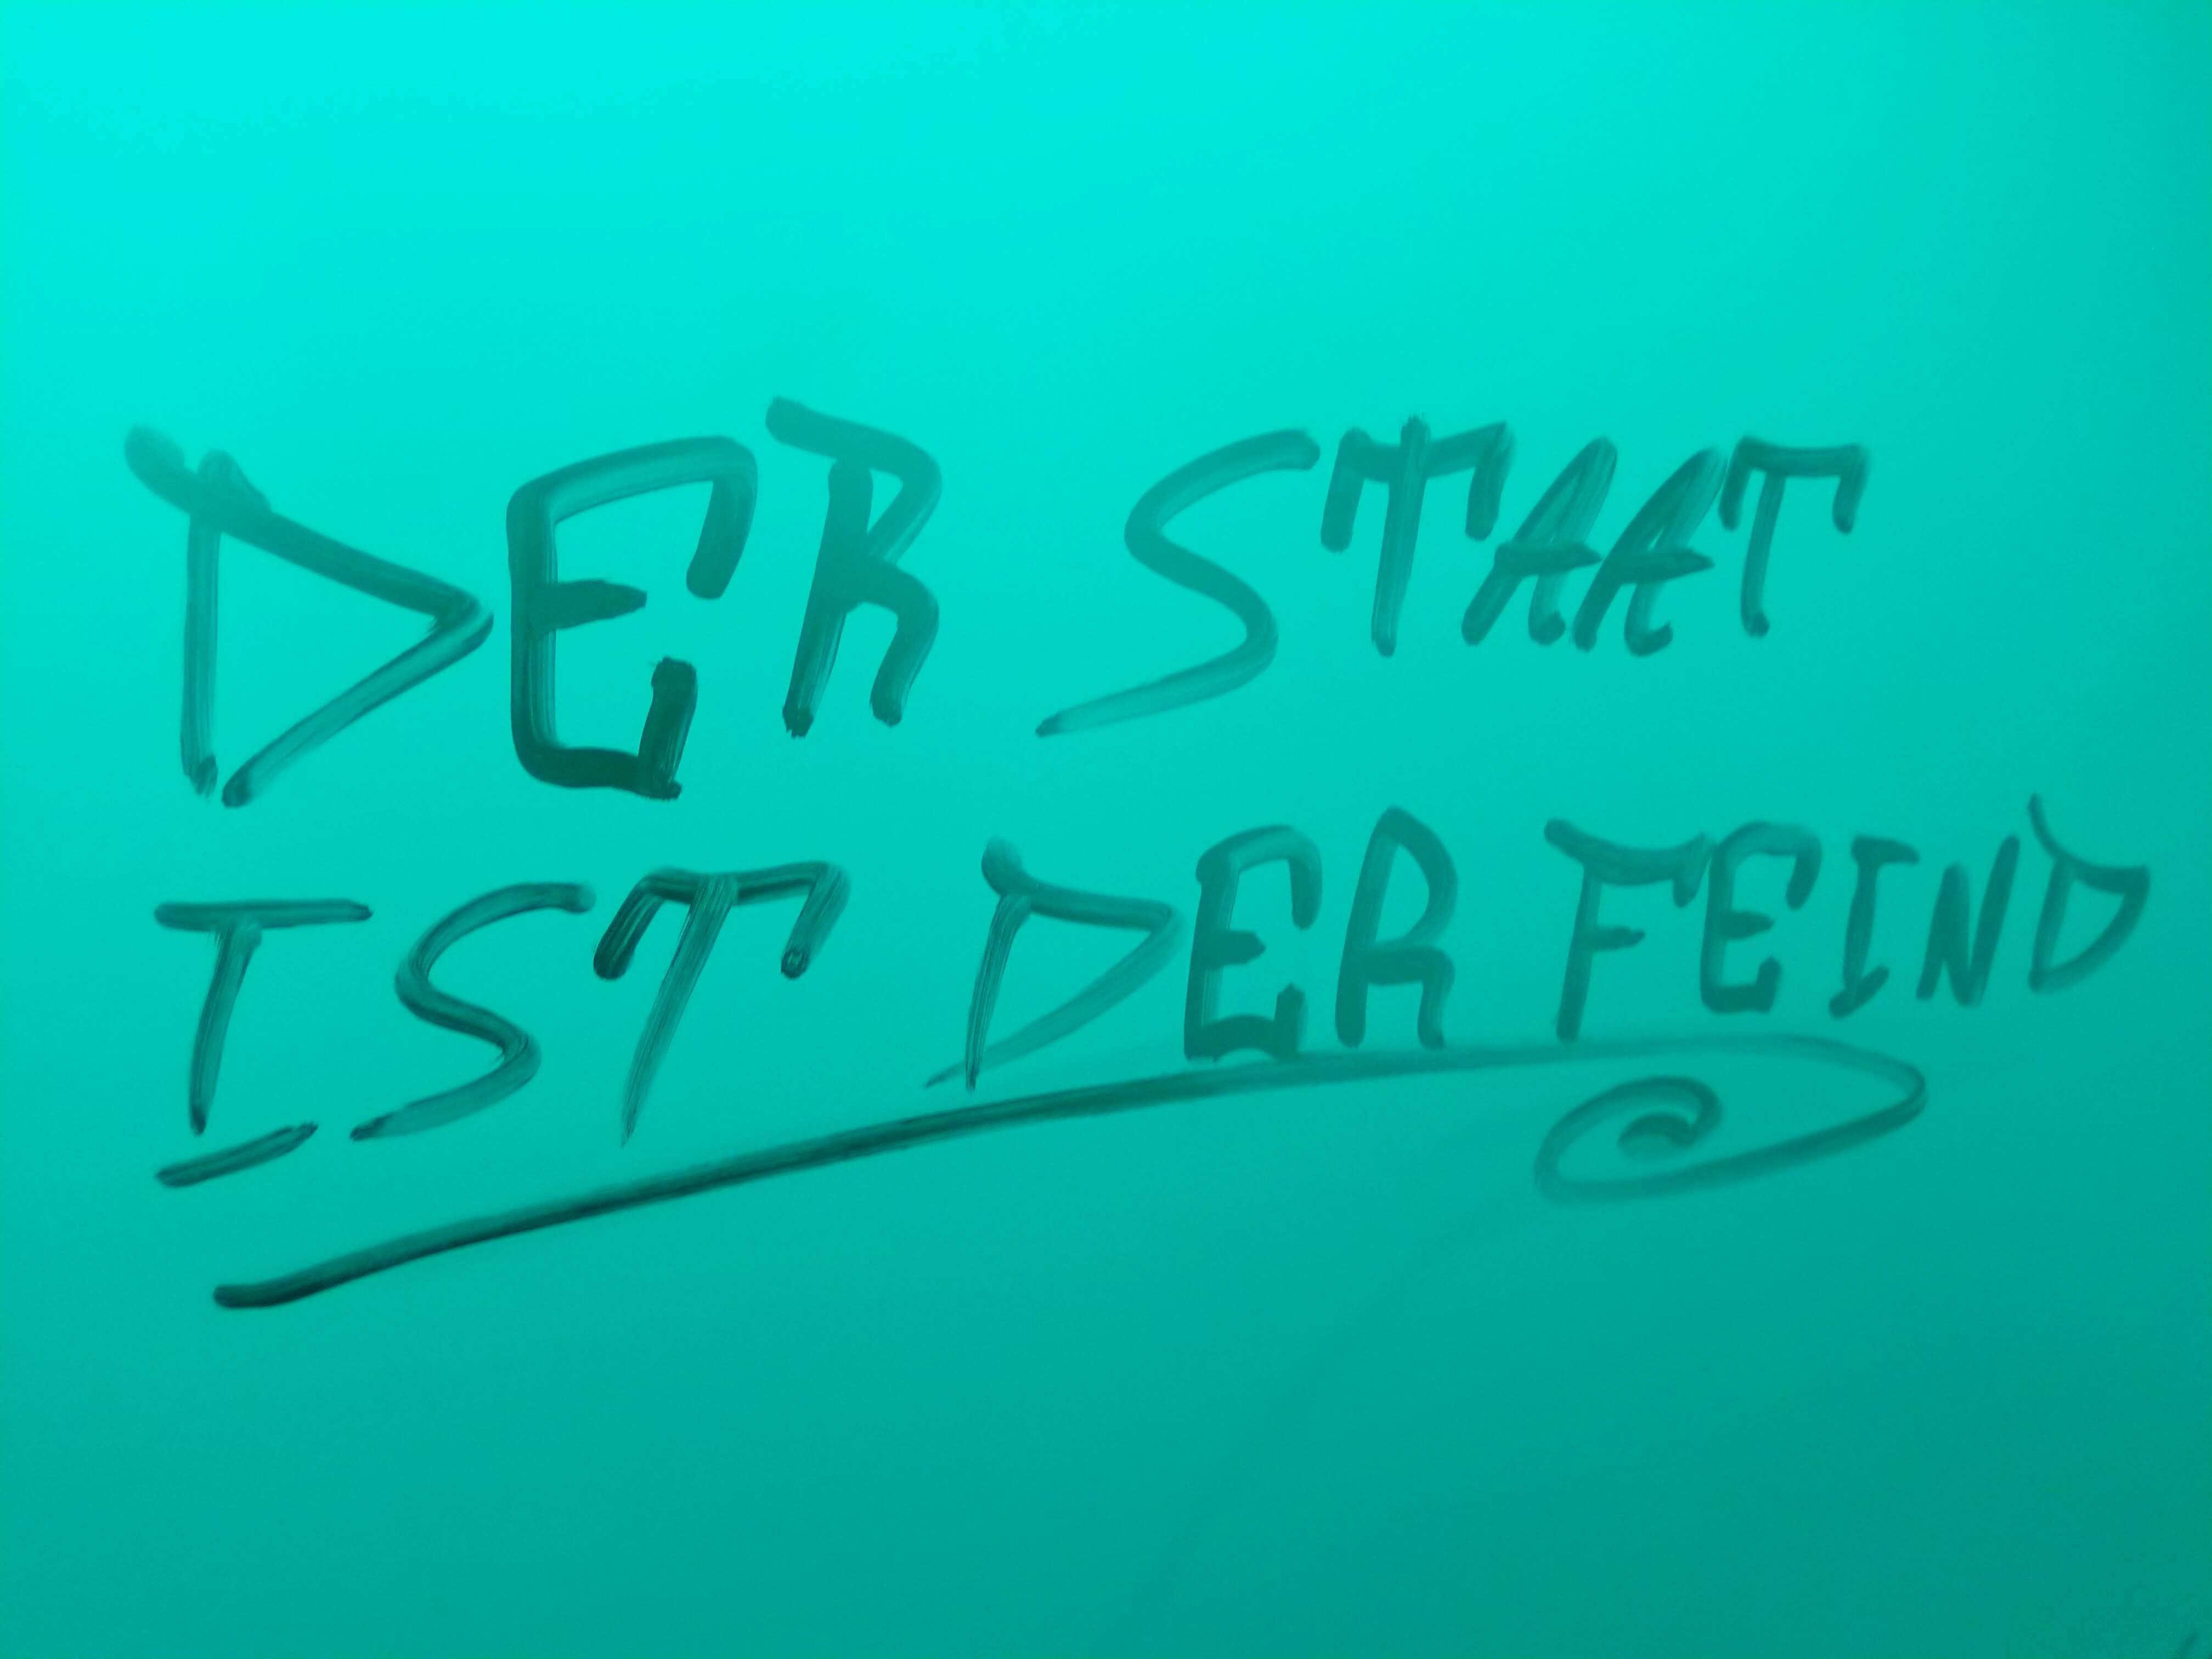 DER STAAT
IST DER FEIND